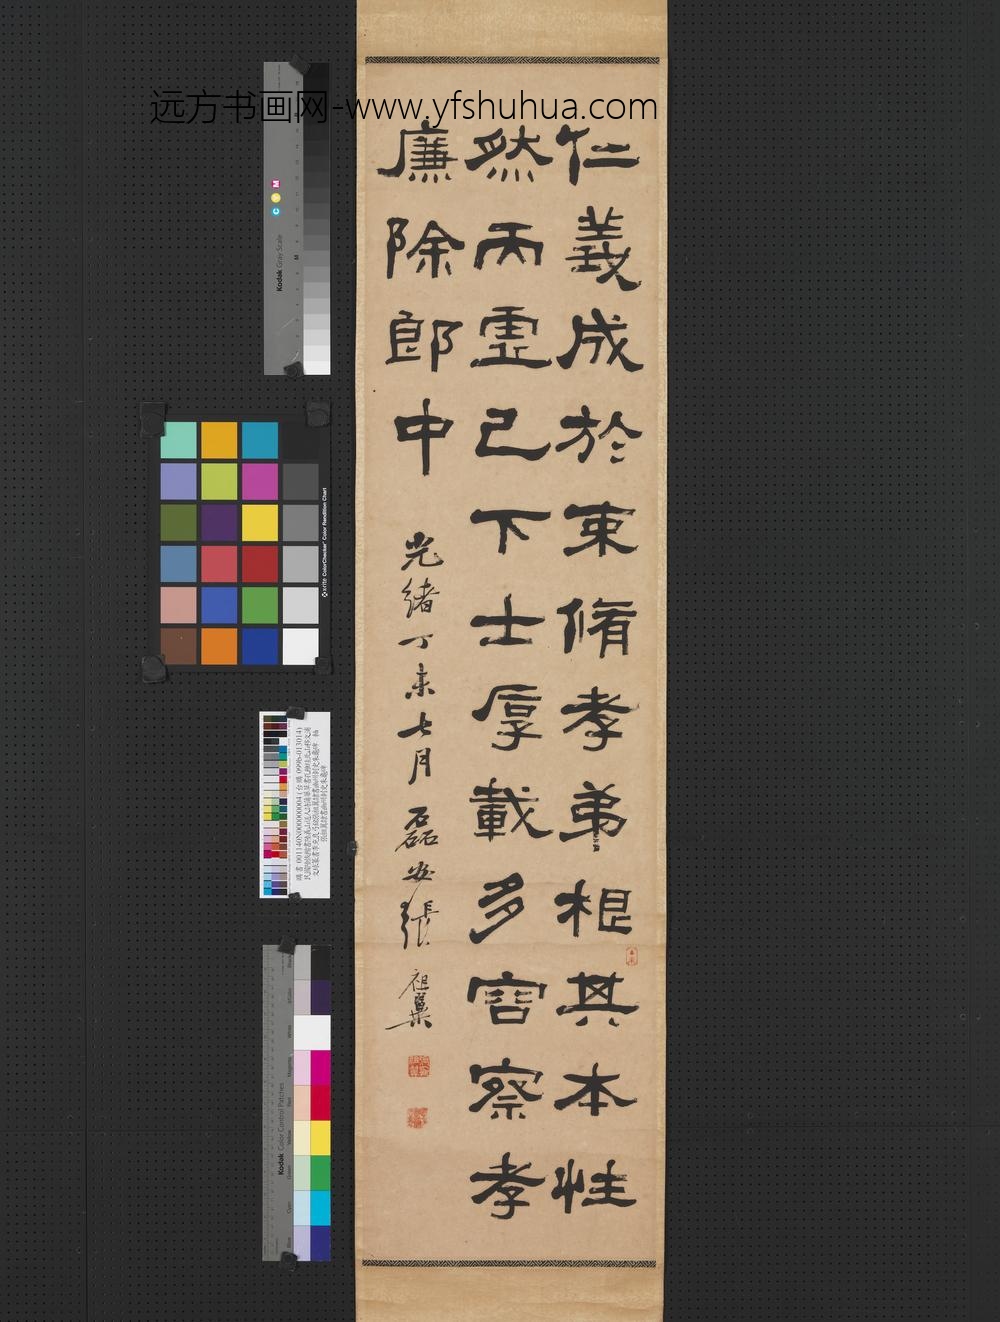 远方书画网-www.yfshuhua.com
仁義成於束脩孝弟根其本性
然丙靈己下士厚載多容察孝
廉除郎中
光緒丁未七月磊盦張祖翼
Kodak Gray Scale
C Y M
x-rite ColorChecker Color Rendition Chart
Kodak Color Control Patches